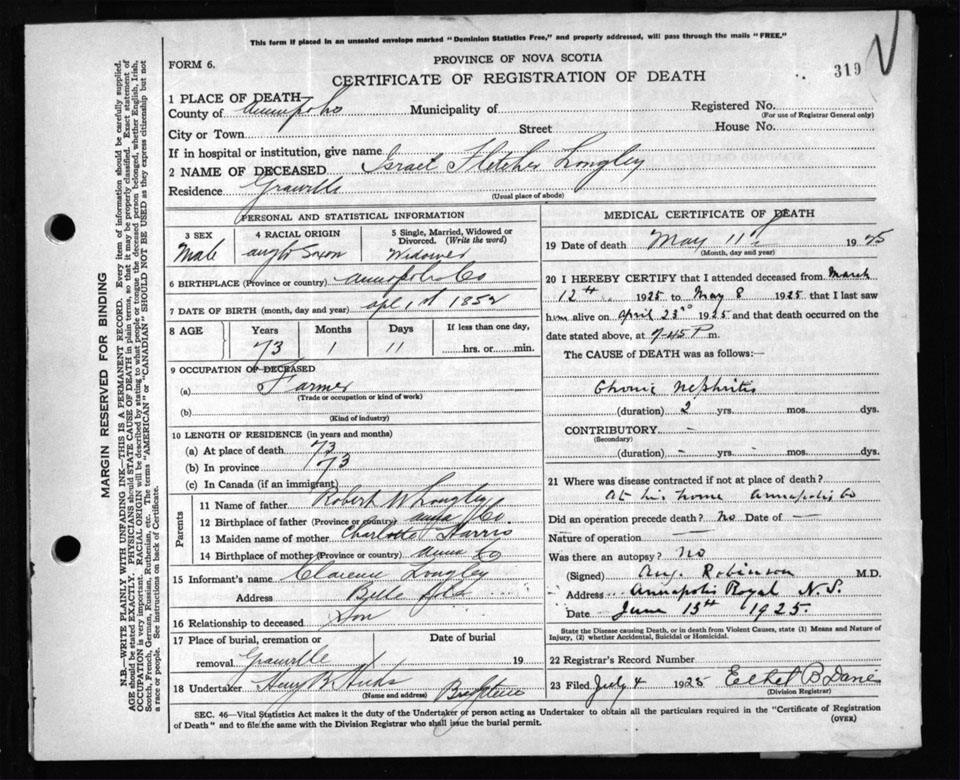 This form if placed in an unsealed envelope marked "Dominion Statistics Free," and properly addressed, will pass through the mails "FREE."
FORM 6.
PROVINCE OF NOVA SCOTIA
CERTIFICATE OF REGISTRATION OF DEATH
319
1 PLACE OF DEATH—
County of Annapolis Municipality of Registered No.
(For use of Registrar General only)
City or Town Street House No.
If in hospital or institution, give name
2 NAME OF DECEASED Israel Fletcher Longley
Residence Granville
(Usual place of abode)
PERSONAL AND STATISTICAL INFORMATION
3 SEX
Male
4 RACIAL ORIGIN
Anglo Saxon
5 Single, Married, Widowed or Divorced. (Write the word)
Widower
6 BIRTHPLACE (Province or country) Annapolis Co
7 DATE OF BIRTH (month, day and year) Apl 1st 1852
8 AGE Years Months Days If less than one day,
73 1 11 hrs. or min.
9 OCCUPATION OF DECEASED
(a) Farmer
(Trade or occupation or kind of work)
(b)
(Kind of industry)
10 LENGTH OF RESIDENCE (in years and months)
(a) At place of death 73
(b) In province 73
(c) In Canada (if an immigrant)
Parents
11 Name of father Robert W Longley
12 Birthplace of father (Province or country) Anna Co.
13 Maiden name of mother Charlotte Harris
14 Birthplace of mother (Province or country) Anna Co
15 Informant's name Clarence Longley
Address Belle Isle
16 Relationship to deceased Son
17 Place of burial, cremation or removal Granville
Date of burial 19
18 Undertaker
(Name and address)
MEDICAL CERTIFICATE OF DEATH
19 Date of death May 11 1925
(Month, day and year)
20 I HEREBY CERTIFY that I attended deceased from March
12th 1925 to May 8 1925 that I last saw
him alive on April 23rd 1925 and that death occurred on the
date stated above, at 7-45 P m.
The CAUSE of DEATH was as follows:
Chronic Nephritis
(duration) 2 yrs. mos. dys.
CONTRIBUTORY —
(Secondary)
(duration) — yrs. — mos. dys.
21 Where was disease contracted if not at place of death?
At his home Annapolis Co
Did an operation precede death? No Date of —
Nature of operation —
Was there an autopsy? No
(Signed) Aug. Robinson M.D.
Address Annapolis Royal N.S.
Date June 15th 1925.
State the Disease causing Death, or in death from Violent Causes, state (1) Means and Nature of
Injury, (2) whether Accidental, Suicidal or Homicidal.
22 Registrar's Record Number
23 Filed July 4 1925 Ethel B
(Division Registrar)
SEC. 46—Vital Statistics Act makes it the duty of the Undertaker or person acting as Undertaker to obtain all the particulars required in the "Certificate of Registration
of Death" and to file the same with the Division Registrar who shall issue the burial permit.
(OVER)
MARGIN RESERVED FOR BINDING
N.B.—WRITE PLAINLY WITH UNFADING INK—THIS IS A PERMANENT RECORD. Every item of information should be carefully supplied.
AGE should be stated EXACTLY. PHYSICIANS should STATE CAUSE OF DEATH in plain terms, so that it may be properly classified. Exact statement of
OCCUPATION is very important. RACIAL ORIGIN will be described by stating to what people or tongue the deceased person belonged, whether English, Irish,
Scotch, French, German, Russian, Ruthenian, etc. The terms "AMERICAN" or "CANADIAN" SHOULD NOT BE USED as they express citizenship but not
a race or people. See instructions on back of Certificate.